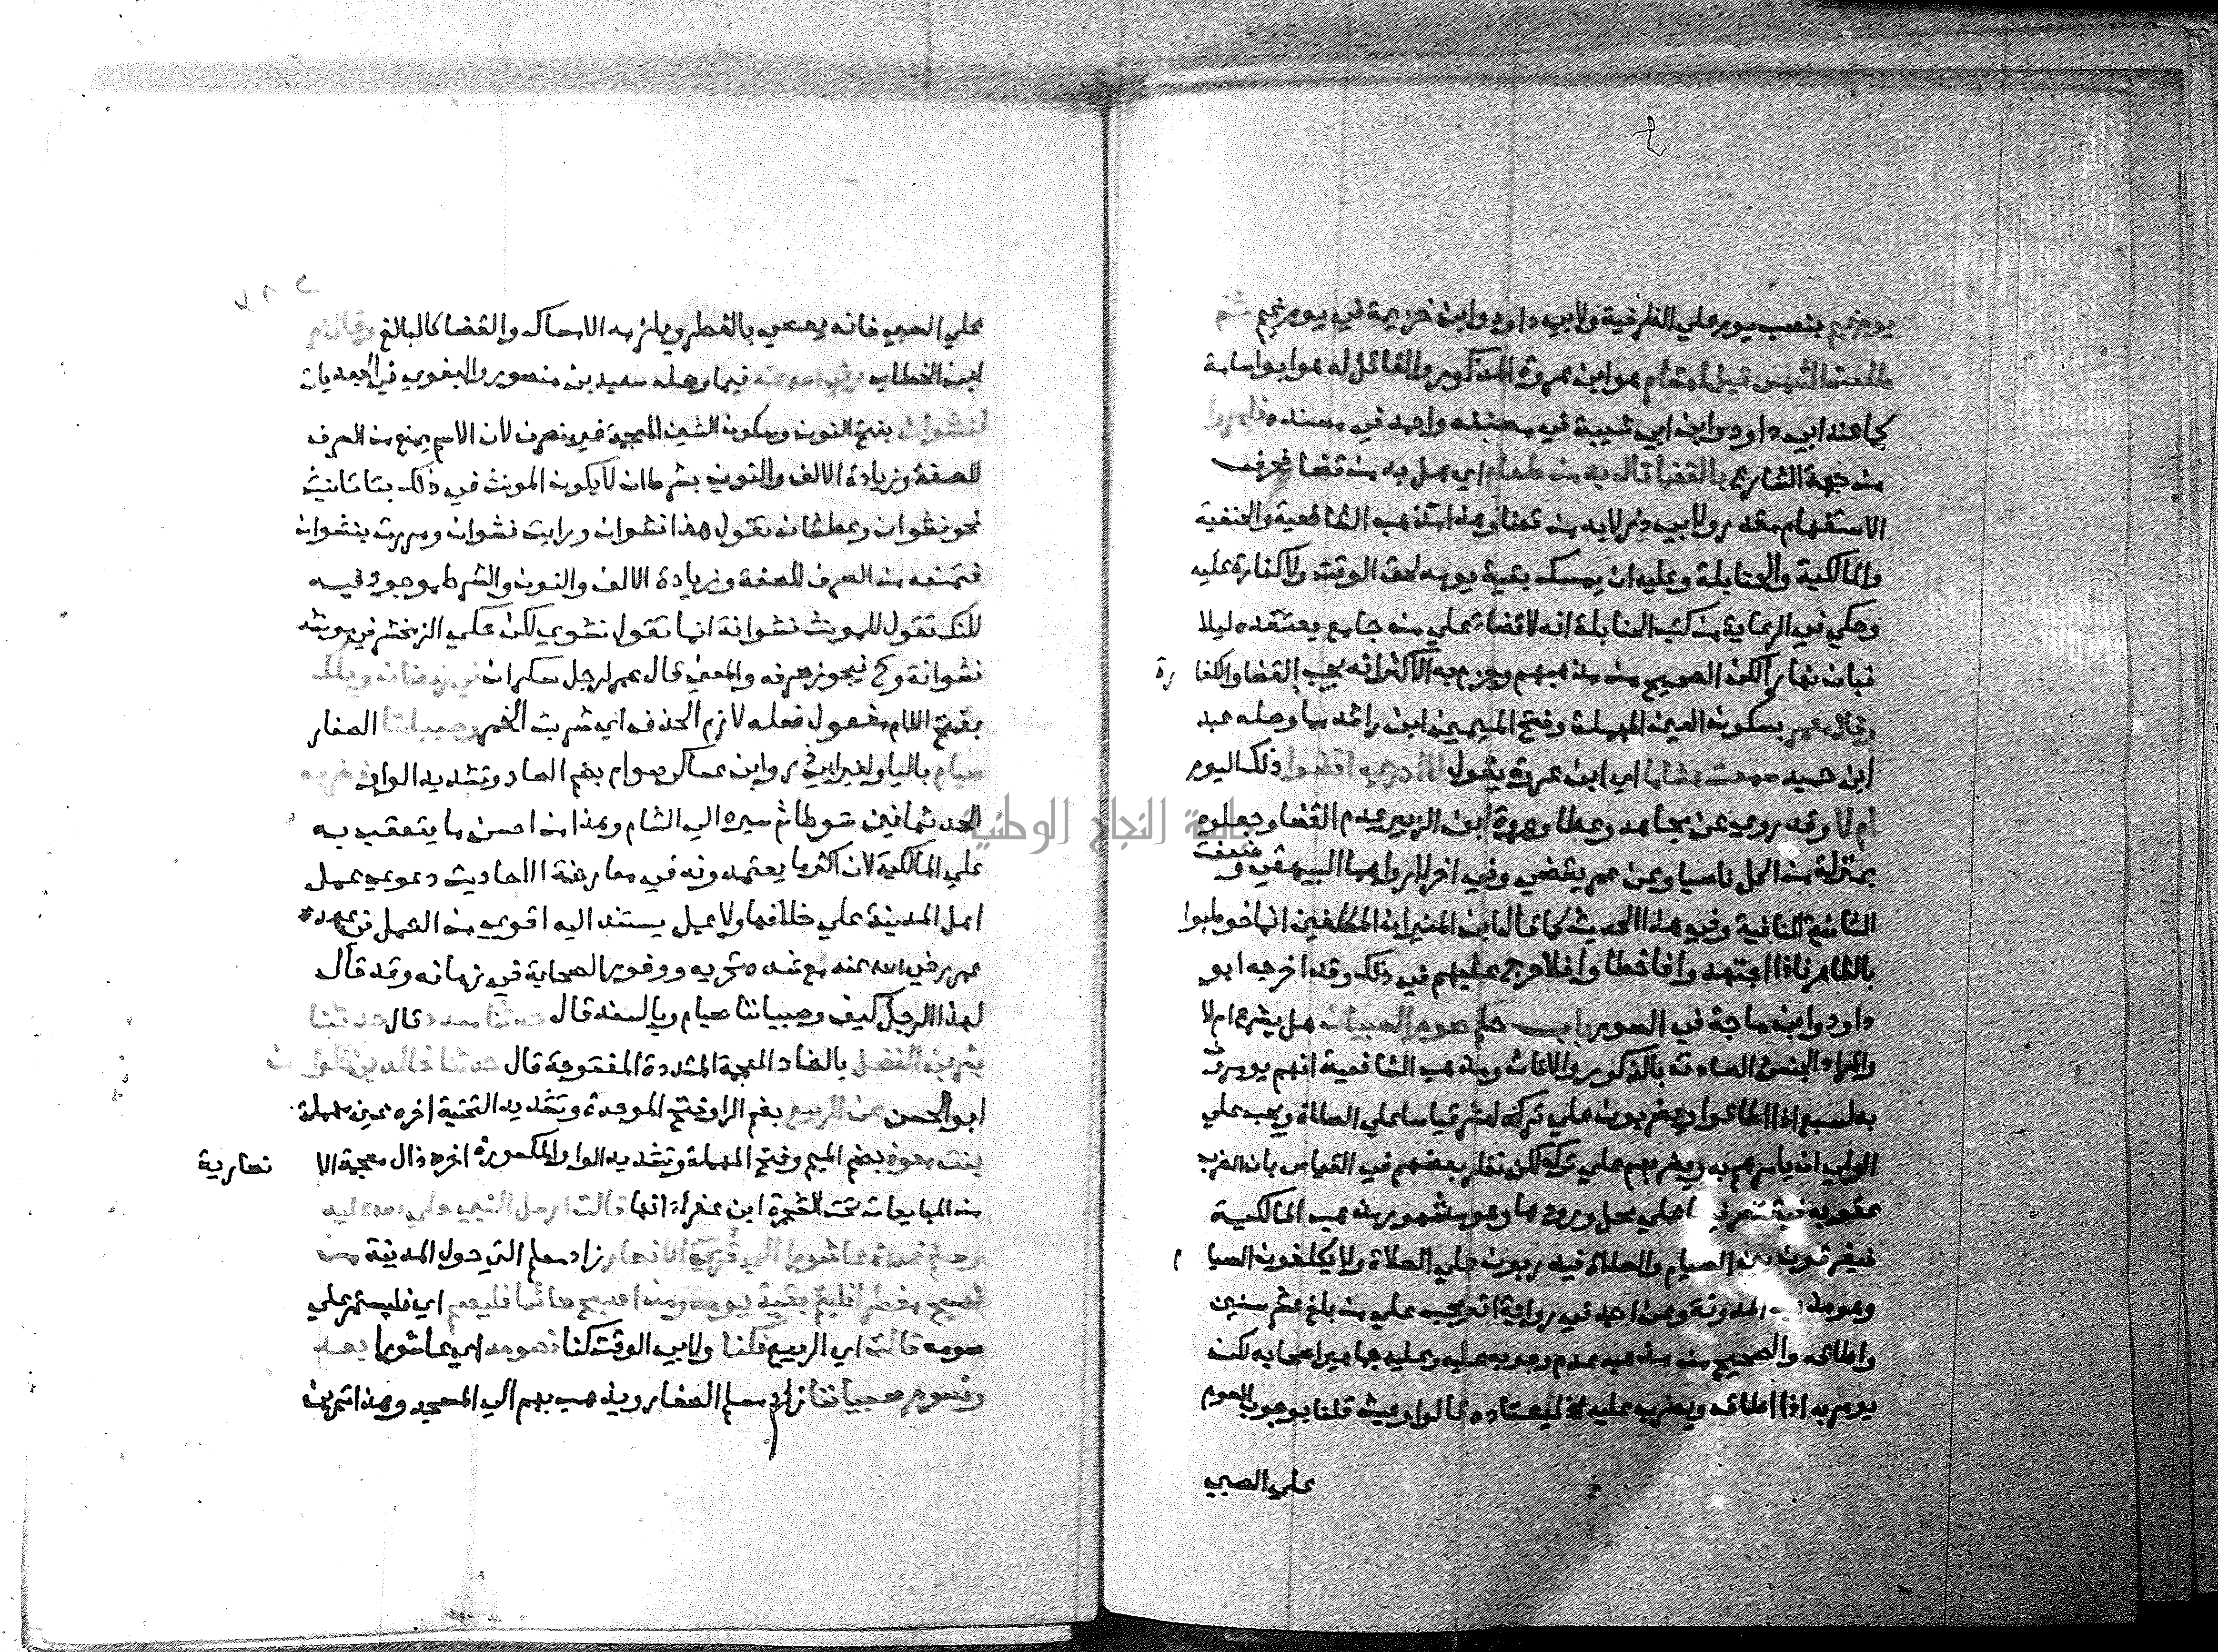 يوم غيم بنصب يوم على الظرفية ولابي داود وابن خزيمة في يوم غيم ثم
طلعت الشمس قيل لهشام هو ابن عروة المذكور والقائل له هو ابو اسامة
كما عند ابي داود وابن ابي شيبة في مصنفه واحمد في مسنده فامروا
من جهة الشارع بالقضا قال بد من قضا اي هل بد من قضا فحرف
الاستفهام مقدر ولابي ذر لا بد من قضا وهذا مذهب الشافعية والحنفية
والمالكية والحنابلة وعليه ان يمسك بقية يومه لحق الوقت ولا كفارة عليه
وحكي في الرعاية من كتب الحنابلة انه لا قضا على من جامع يعتقده ليلا
فبان نهارا لكن الصحيح من مذهبهم وجزم به الاكثر انه يجب القضا والكفا رة
وقال معمر بسكون العين المهملة وفتح الميمين ابن راشد مما وصله عبد
ابن حميد سمعت هشاما اي ابن عروة يقول لا ادري اقضوا ذلك اليوم
ام لا وقد روي عن مجاهد وعطا وعروة ابن الزبير عدم القضا وجعلوه
بمنزلة من اكل ناسيا وعن عمر يقضي وفي اخر لا رواهما البيهقي و ضعفت
الثانية النافية وفي هذا الحديث كما قاله ابن المنير ان المكلفين انما خوطبوا
بالظاهر فاذا اجتهدوا فاخطاوا فلا حرج عليهم في ذلك وقد اخرجه ابو
داود وابن ماجة في الصوم باب حكم صوم الصبيان هل يشرع ام لا
والمراد الجنس الصادق بالذكور والاناث ومذهب الشافعية انهم يومرون
به لسبع اذا اطاقوا ويضربون على تركه لعشر قياسا على الصلاة ويجب على
الولي ان يامرهم به ويضربهم على تركه لكن نظر بعضهم في القياس بان الضرب
عقوبة فيقتصر فيها على محل ورودها وهو مشهور مذهب المالكية
فيفرقون بين الصيام والصلاة فيضربون على الصلاة ولا يكلفون الصيا م
وهو مذهب المدونة وعن احمد في رواية انه يجب على من بلغ عشر سنين
واطاقه والصحيح من مذهبه عدم وجوبه عليه وعليه جماهير اصحابه لكن
يومر به اذا اطاقه ويضرب عليه ليعتاده قالوا وحيث قلنا بوجوب الصوم
على الصبي
على الصبي فانه يعصي بالفطر ويلزمه الامساك والقضا كالبالغ وقال عمر
ابن الخطاب رضي الله عنه فيما وصله سعيد بن منصور والبغوي في الجعديات
لنشوان بفتح النون وسكون الشين المعجمة غير منصرف لان الاسم يمنع من الصرف
للصفة وزيادة الالف والنون بشرط ان لا يكون المونث في ذلك بتا تانيث
نحو نشوان وعطشان تقول هذا نشوان ورايت نشوان ومررت بنشوان
فتمنعه من الصرف للصفة وزيادة الالف والنون والشرط موجود فيه
لانك تقول للمونث نشوانة انما تقول نشوى لكن حكى الزمخشري في مونثه
نشوانة وح فيجوز صرفه والمعنى قال عمر لرجل سكران في رمضان ويلك
بفتح اللام مفعول فعله لازم الحذف اي شربت الخمر وصبياننا الصغار
صيام باليا ولغير ابي ذر وابن عساكر صوام بضم الصاد وتشديد الواو فضربه
الحد ثمانين سوطا ثم سيره الى الشام وهذا من احسن ما يتعقب به
على المالكية لان اكثر ما يعتمدونه في معارضة الاحاديث دعوى عمل
اهل المدينة على خلافها ولا عمل يستند اليه اقوى من العمل في عهد
عمر رضي الله عنه مع شدة تحريه ووفور الصحابة في زمانه وقد قال
لهذا الرجل كيف وصبياننا صيام وبالسند قال حدثنا مسدد قال حدثنا
بشر بن المفضل بالضاد المعجمة المشددة المفتوحة قال حدثنا خالد بن ذكوان
ابو الحسن عن الربيع بضم الرا وفتح الموحدة وتشديد التحتية اخره عين مهملة
بنت معوذ بضم الميم وفتح المهملة وتشديد الواو المكسورة اخره ذال معجمة الا نصارية
من المبايعات تحت الشجرة ابن عفراء انها قالت ارسل النبي صلى الله عليه
وسلم غداة عاشورا الى قرى الانصار زاد مسلم التي حول المدينة من
اصبح مفطرا فليتم بقية يومه ومن اصبح صائما فليصم اي فليستمر على
صومه قالت اي الربيع فكنا ولابي الوقت كنا نصومه اي عاشورا بعد
ونصوم صبياننا زاد مسلم الصغار ويذهب بهم الى المسجد وهذا تمرين